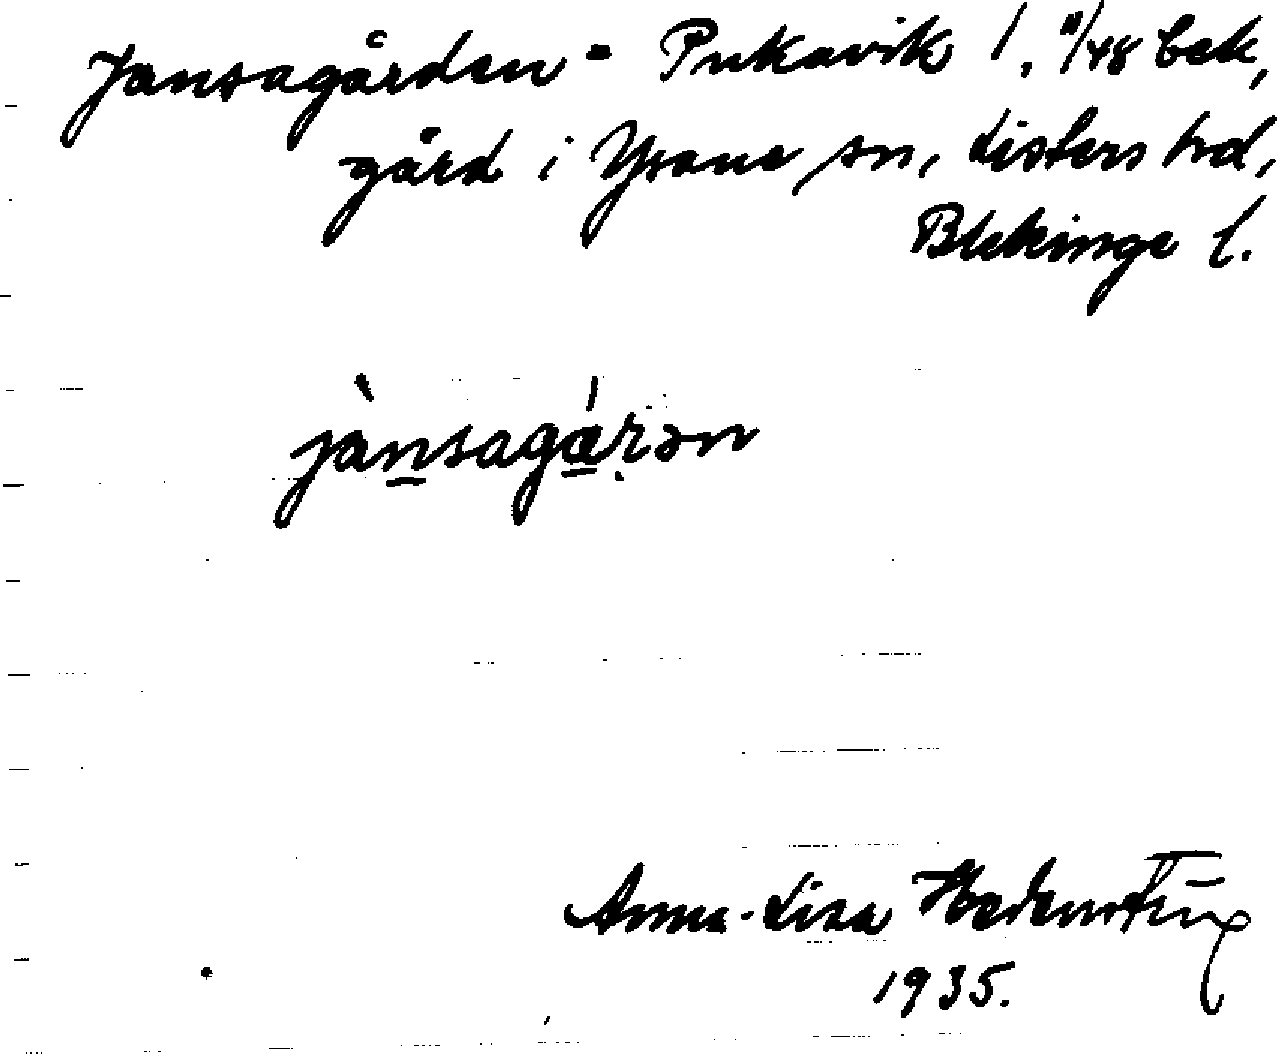 Jansagården = Pukavik 1, 11/48 bek,
gård i Ysane sn, Listers hd,
Blekinge l.
jànsagárən
Anna-Lisa
1935.